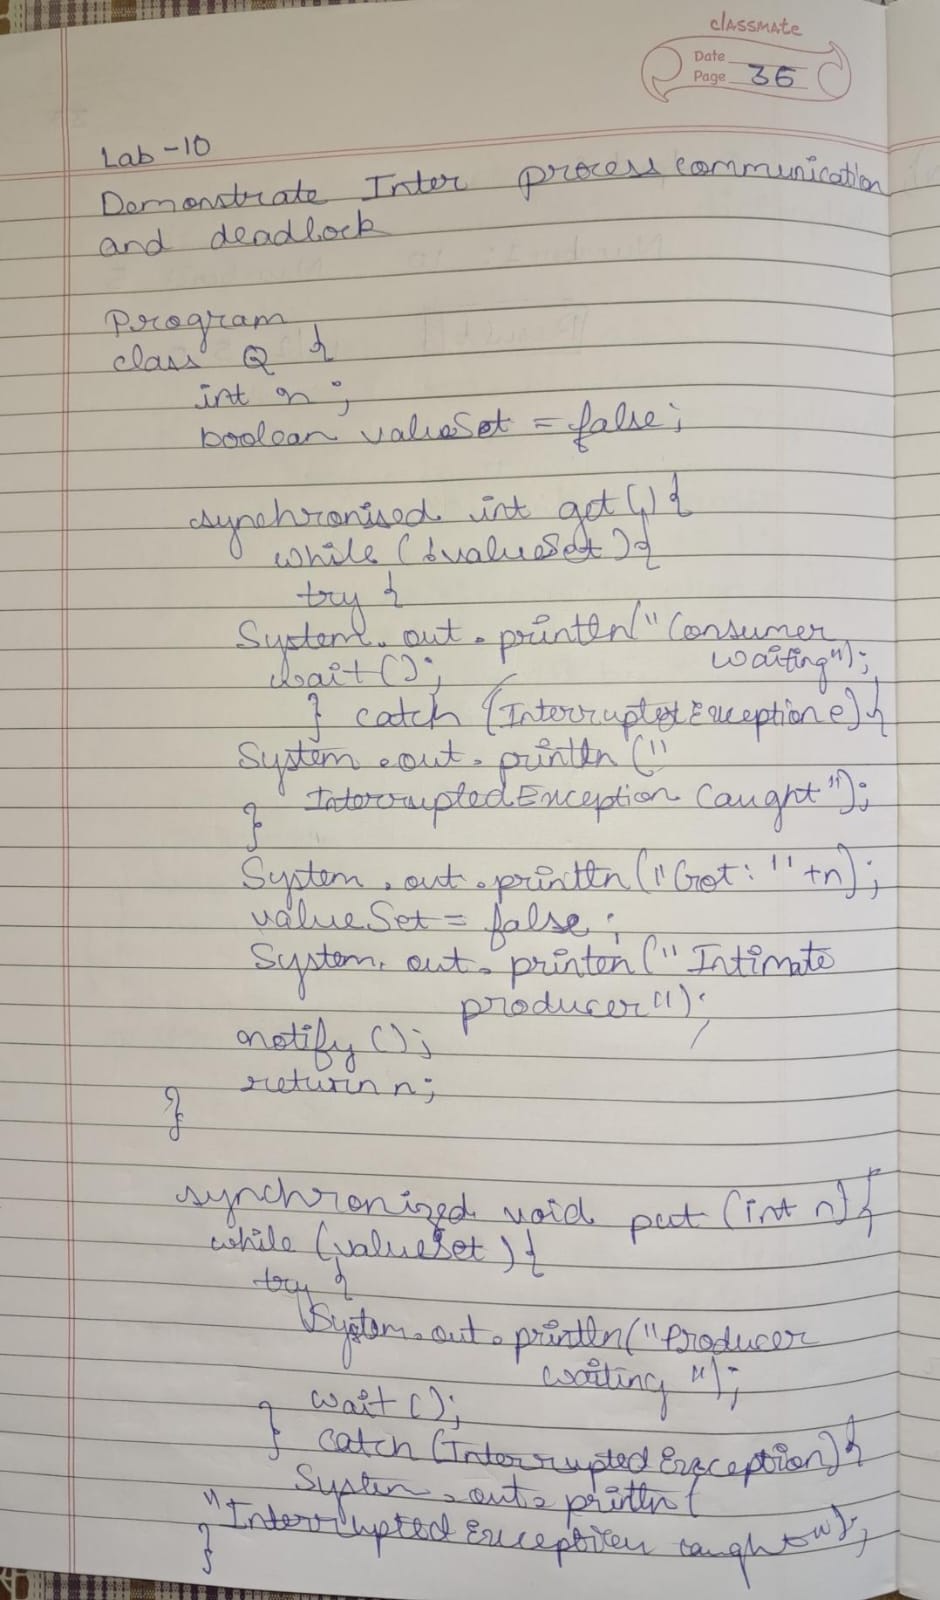 classmate
Date
Page 36
Lab-10
Demonstrate Inter process communication
and deadlock
Program
class Q {
int n;
boolean valueSet = false;
synchronised int get() {
while (!valueSet) {
try {
System.out.println("Consumer
waiting");
wait();
} catch (InterruptedException e) {
System.out.println("
InterruptedException Caught");
}
System.out.println("Got: "+n);
valueSet = false;
System.out.println("Intimate
producer");
notify();
return n;
}
synchronized void put (int n) {
while (valueSet) {
try {
System.out.println("Producer
waiting");
wait();
} catch (InterruptedException) {
System.out.println(
"InterruptedException caught");
}